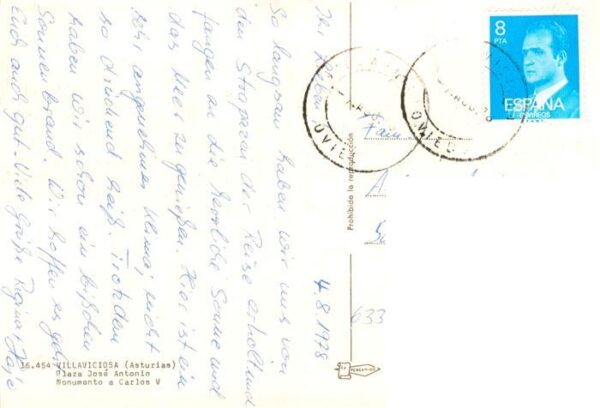 Ihr Lieben,
So langsam haben wir uns von
den Strapazen der Reise erholt und
fangen an die herrliche Sonne und
das Meer zu genießen. Hier ist ein
sehr angenehmes Klima, nicht
so drückend heiß. Trotzdem
haben wir schon ein bißchen
Sonnenbrand. Wir hoffen es geht
Euch auch gut. Viele Grüße Regina +
4.8.1978
8
PTA
ESPAÑA
CORREOS
OVIEDO
OVIEDO
Fam
633
Prohibida la reproducción
36.454-VILLAVICIOSA (Asturias)
Plaza José Antonio
Monumento a Carlos V